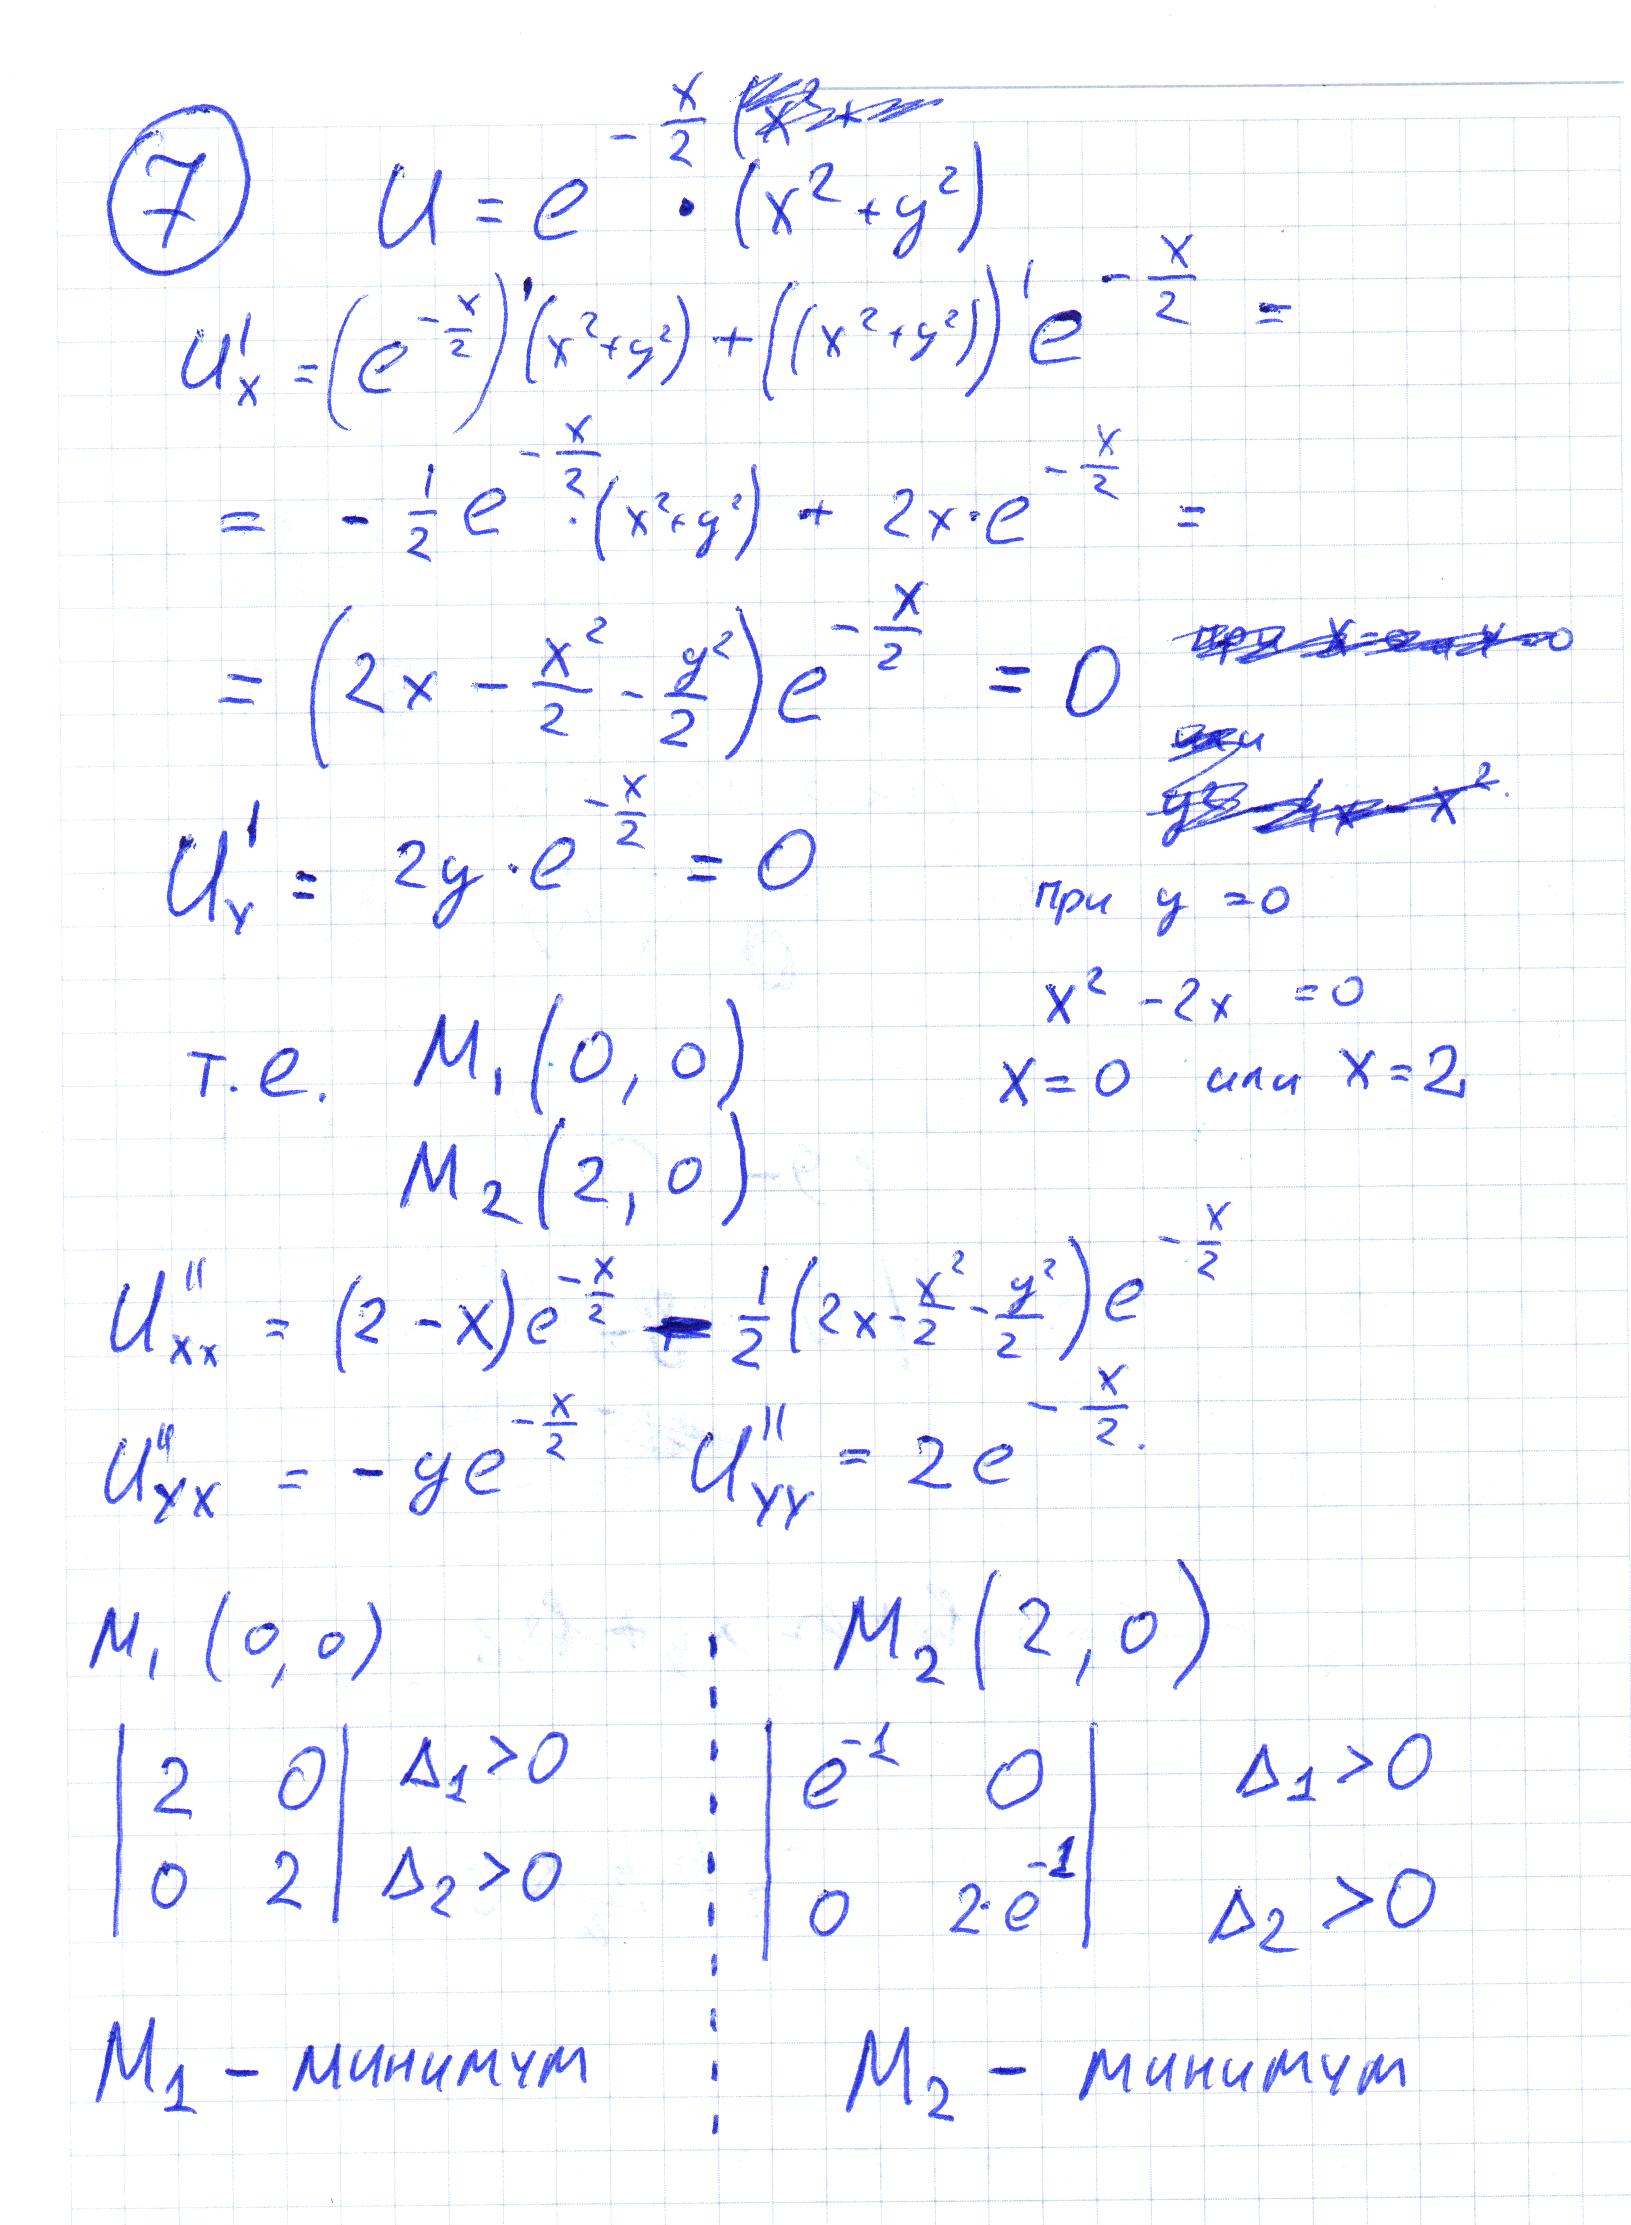 7 U = e^{-x/2} · (x² + y²)
U'_x = (e^{-x/2})' (x²+y²) + ((x²+y²))' e^{-x/2} =
= - 1/2 e^{-x/2} · (x²+y²) + 2x · e^{-x/2} =
= (2x - x²/2 - y²/2) e^{-x/2} = 0
U'_y = 2y · e^{-x/2} = 0
при y = 0
x² - 2x = 0
x = 0 или x = 2
т.е. M₁ (0, 0)
M₂ (2, 0)
U''_xx = (2 - x) e^{-x/2} - 1/2 (2x - x²/2 - y²/2) e^{-x/2}
U''_yx = - y e^{-x/2} U''_yy = 2 e^{-x/2}.
M₁ (0, 0) M₂ (2, 0)
| 2 0 | Δ₁ > 0 | e^{-1} 0 | Δ₁ > 0
| 0 2 | Δ₂ > 0 | 0 2·e^{-1} | Δ₂ > 0
M₁ - минимум M₂ - минимум